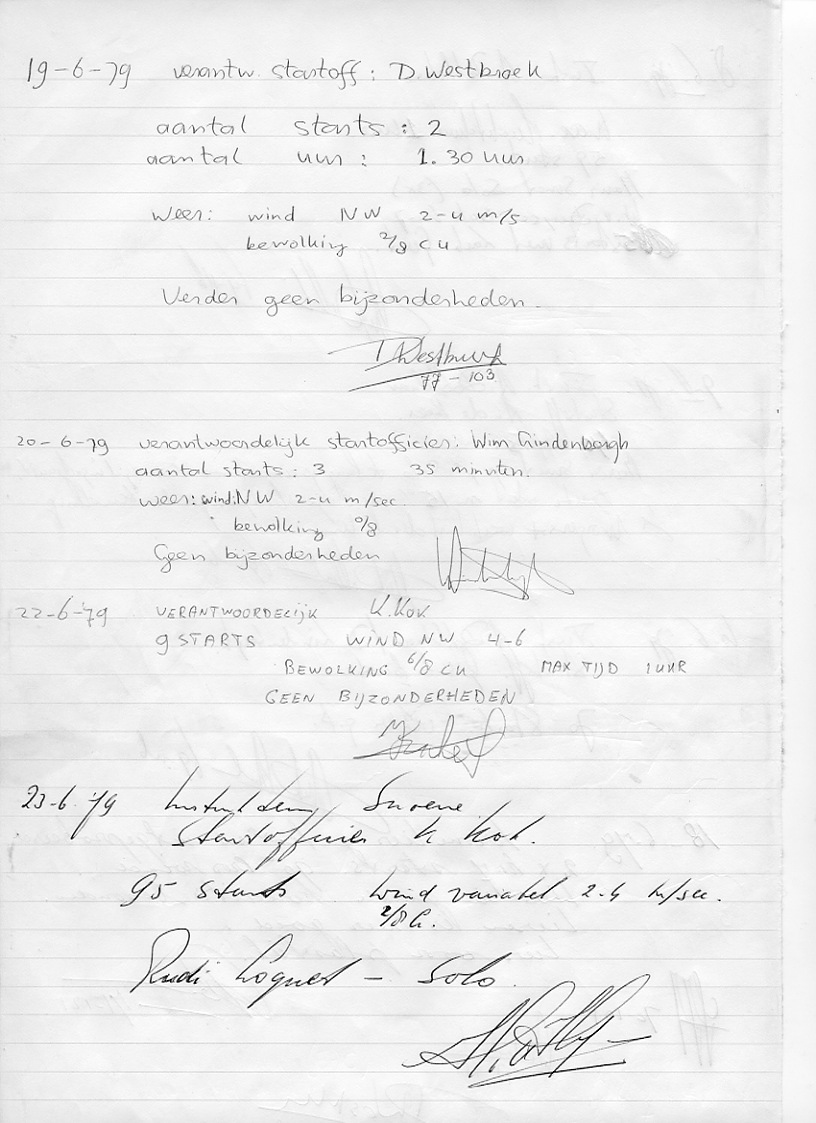 19-6-79 verantw. startoff: D Westbroek
aantal starts: 2
aantal uur: 1.30 uur
weer: wind NW 2-4 m/s
bewolking 2/8 cu
Verder geen bijzonderheden.
DWestbroek
77-103
20-6-79 verantwoordelijk startofficier: Wim
aantal starts: 3 35 minuten.
weer: wind: NW 2-4 m/sec
bewolking 0/8
Geen bijzonderheden
22-6-'79 VERANTWOORDELIJK K.KOK
9 STARTS WIND NW 4-6
BEWOLKING 6/8 CU MAX TIJD 1 UUR
GEEN BIJZONDERHEDEN
23-6-'79
Startofficier K Kok.
95 starts Wind variabel 2-4 m/sec.
2/8
Rudi - Solo.